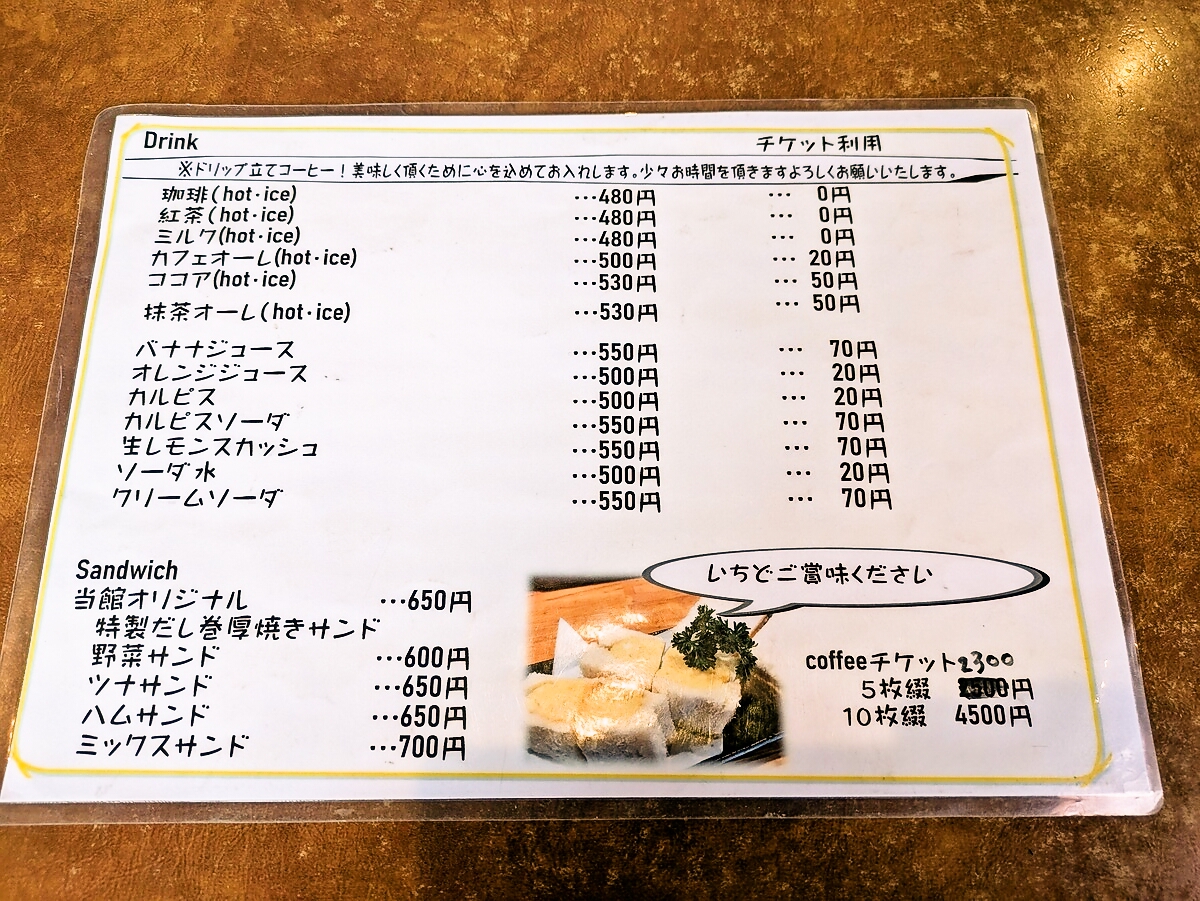 Drink チケット利用
※ドリップ立てコーヒー！美味しく頂くために心を込めてお入れします。少々お時間を頂きますよろしくお願いいたします。
珈琲(hot·ice) …480円 … 0円
紅茶(hot·ice) …480円 … 0円
ミルク(hot·ice) …480円 … 0円
カフェオーレ(hot·ice) …500円 … 20円
ココア(hot·ice) …530円 … 50円
抹茶オーレ(hot·ice) …530円 … 50円
バナナジュース …550円 … 70円
オレンジジュース …500円 … 20円
カルピス …500円 … 20円
カルピスソーダ …550円 … 70円
生レモンスカッシュ …550円 … 70円
ソーダ水 …500円 … 20円
クリームソーダ …550円 … 70円
Sandwich
当館オリジナル …650円
特製だし巻厚焼きサンド
野菜サンド …600円
ツナサンド …650円
ハムサンド …650円
ミックスサンド …700円
いちどご賞味ください
coffeeチケット2300
5枚綴 円
10枚綴 4500円